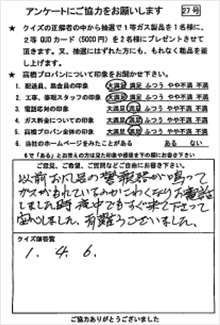 アンケートにご協力をお願いします
27号
★ クイズの正解者の中から抽選で1等ガス製品を1名様に、
2等QUOカード(5000円)を2名様にプレゼントさせて
頂きます。又、抽選にはずれた方にも、もれなく粗品を差し
上げます。
★ 高橋プロパンについて印象をお聞かせ下さい。
1. 配送員、集金員の印象 大満足 満足 ふつう やや不満 不満
2. 工事、修理スタッフの印象 大満足 満足 ふつう やや不満 不満
3. 電話応対の印象 大満足 満足 ふつう やや不満 不満
4. ガス料金についての印象 大満足 満足 ふつう やや不満 不満
5. 高橋プロパン全体の印象 大満足 満足 ふつう やや不満 不満
6. 当社のホームページをみたことがある ある ない
6で「ある」とお答えの方は見た印象や感想を下の欄にお書き下さい
ご意見、ご希望、ご質問などご自由にお書き下さい
以前お風呂の警報器が鳴って
ガスがもれているのかこわくなりお電話
しました時、夜中でもすぐ来て下さって
安心しました。有難うございました。
クイズ解答覧
1. 4. 6.
ご協力ありがとうございました